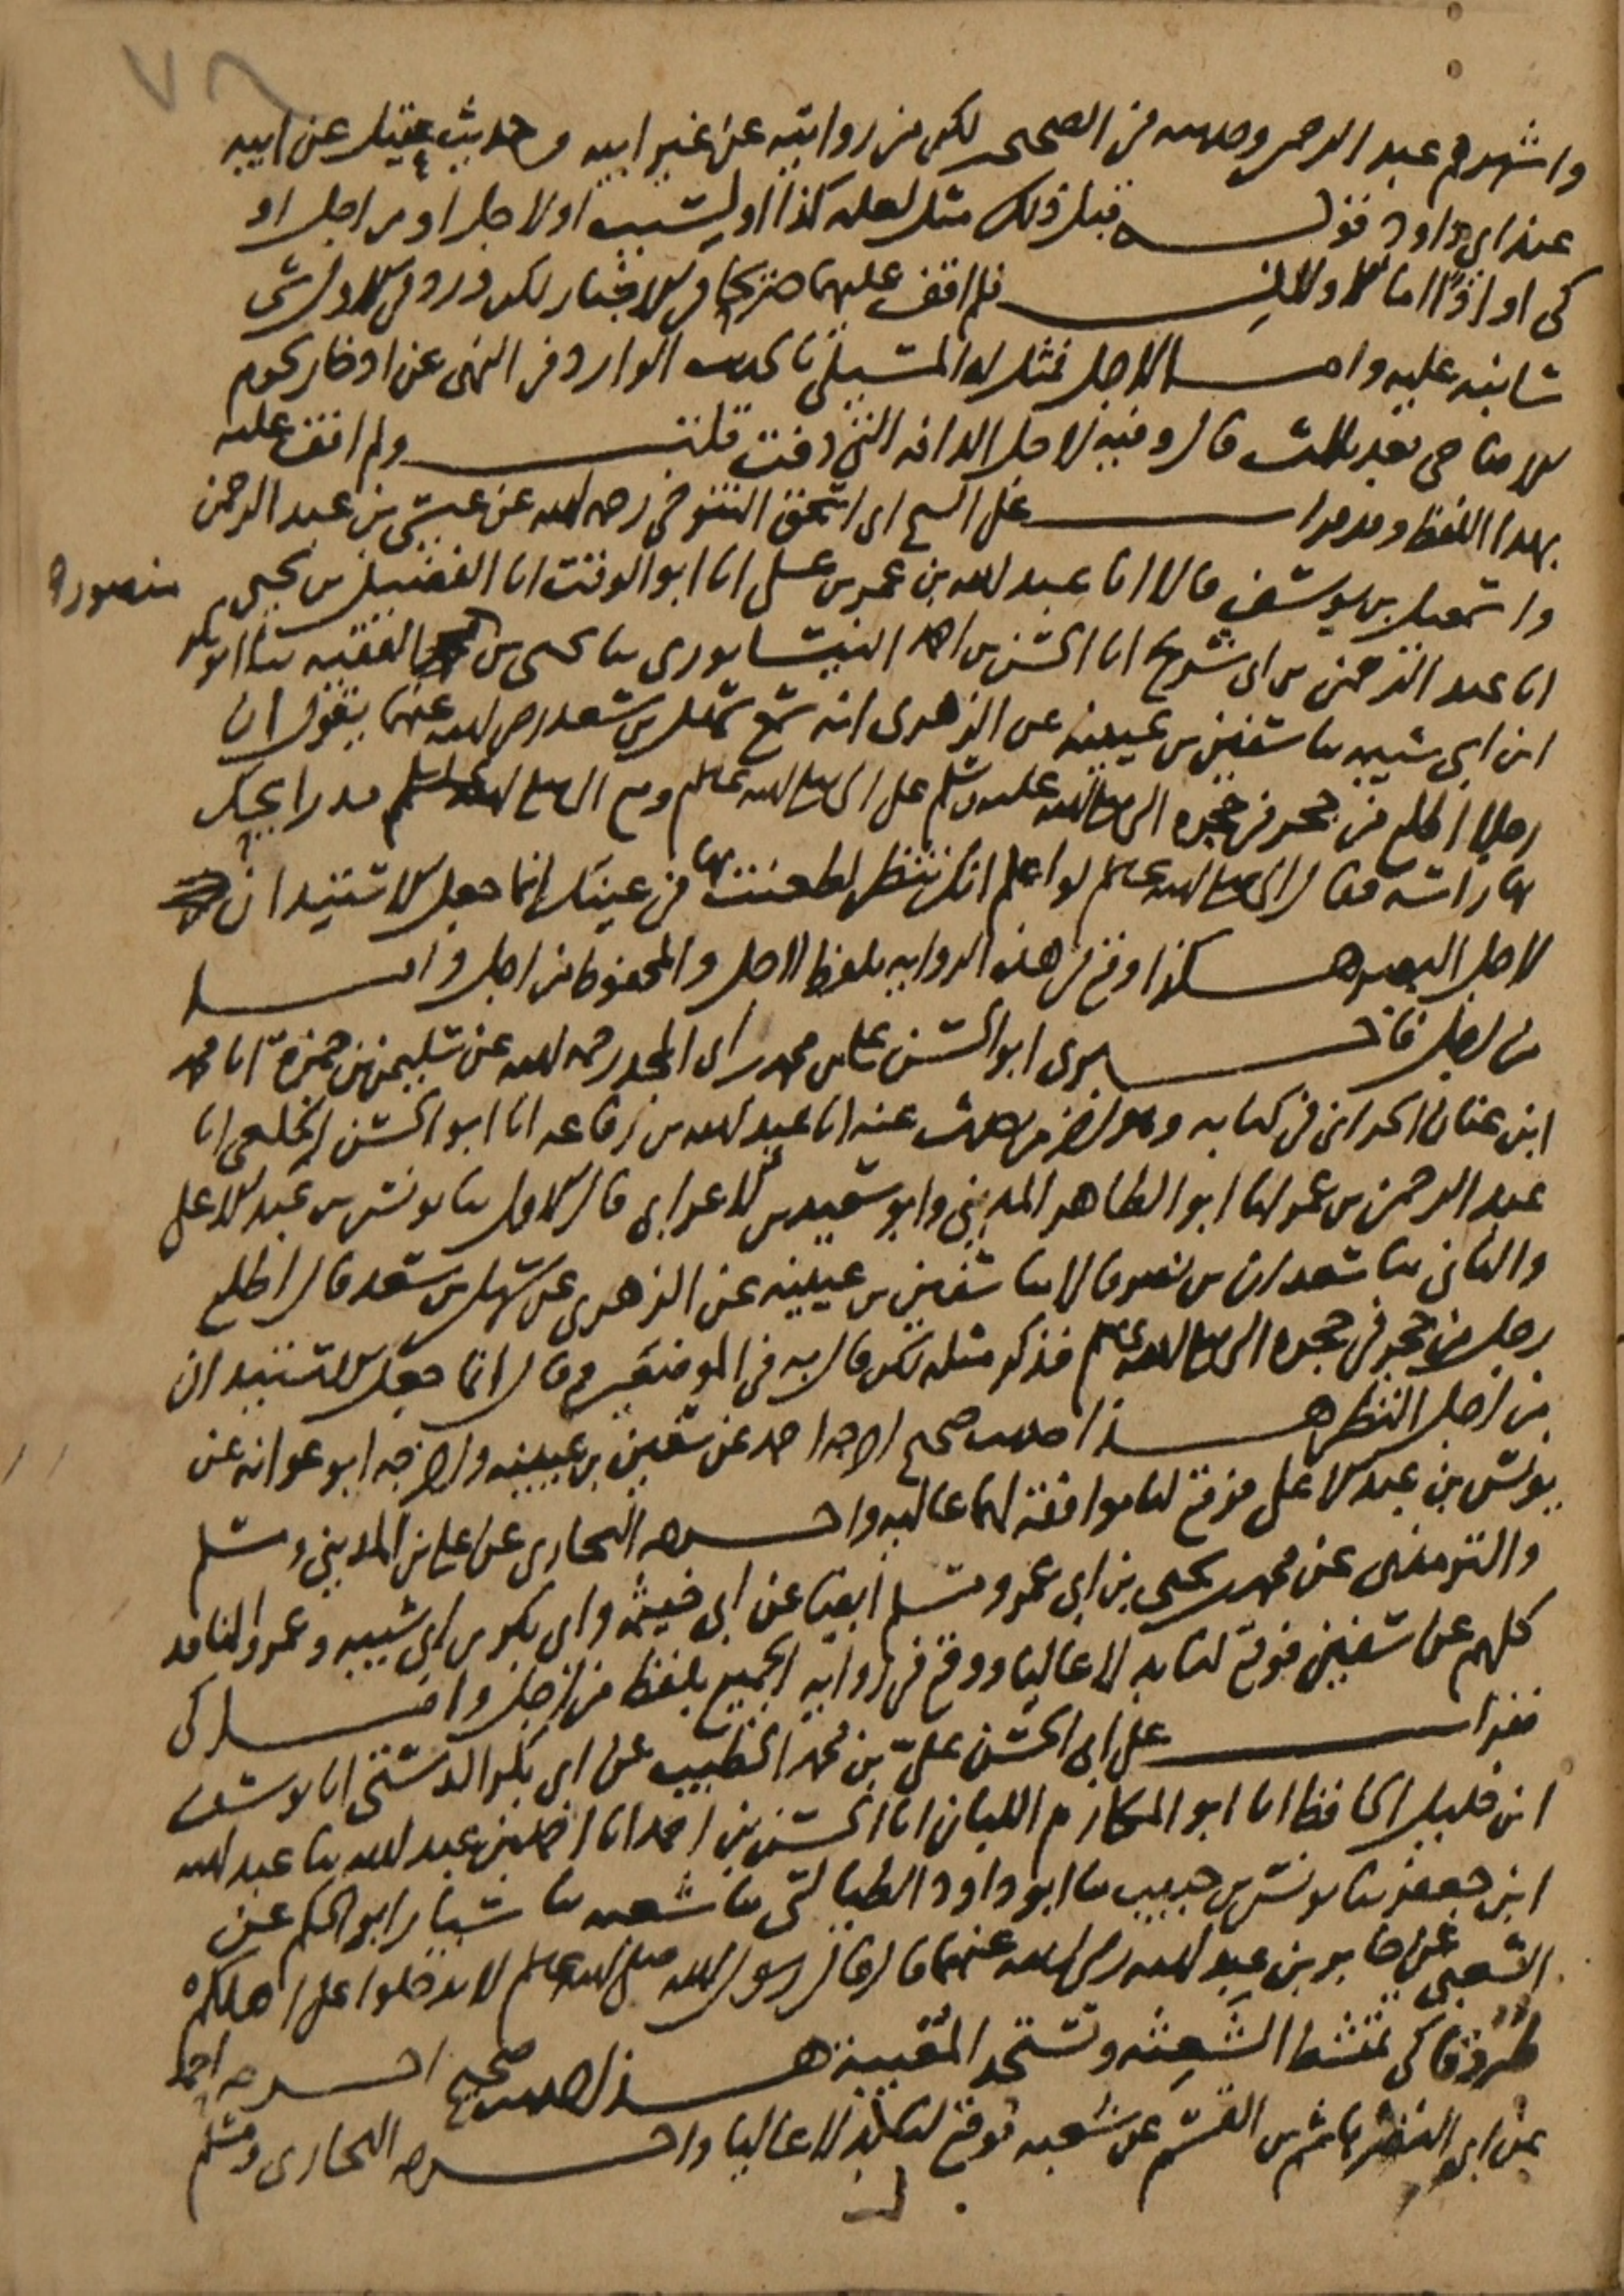 ٧٨
واشهرهم عبد الرحمن وحديثه من الصحيح لكن من روايته عن غير ابيه وحديث عتيك عن ابيه
عند ابي داود قوله قبل ذلك مثل لعلة كذا او لسبب او لاجل او من اجل او
كي او اذا اما الاولان فلم اقف عليهما صريحا في الاخبار لكن ورد في الاول شي
سانبه عليه واما لاجل فمثل له السبكي بالحديث الوارد في النهي عن ادخار لحوم
الاضاحي بعد ثلاث قال وفيه لاجل الدافة التي دفت قلت ولم اقف عليه
بهذا اللفظ وقد قرات على الشيخ ابي اسحق التنوخي رحمه الله عن عيسى بن عبد الرحمن
واسمعيل بن يوسف قالا انا عبد الله بن عمر بن علي انا ابو الوقت انا الفضيل بن يحيى
منصور
انا عبد الرحمن بن ابي شريح انا الحسن بن احمد النيسابوري ثنا يحيى بن الفقيه ثنا ابو بكر
ابن ابي شيبة ثنا سفين بن عيينة عن الزهري انه سمع سهل بن سعد رضي الله عنهما يقول ان
رجلا اطلع من جحر في حجرة النبي صلى الله عليه وسلم على النبي صلى الله عليه وسلم ومع النبي صلى الله عليه وسلم مدرا يحك
بها راسه فقال النبي صلى الله عليه وسلم لو اعلم انك تنظر لطعنت بها في عينك انما جعل الاستيذان
لاجل البصر هكذا وقع في هذه الرواية بلفظ لاجل والمحفوظ من اجل واما
من اجل فاخبرني ابو الحسن علي بن محمد بن ابي المجد رحمه الله عن سليمن بن حمزة انا محمد
ابن عماد الحراني في كتابه وهو اخر من حدث عنه انا عبد الله بن رفاعة انا ابو الحسن الخلعي انا
عبد الرحمن بن عمر انا ابو الطاهر المديني وابو سعيد بن الاعرابي قال الاول ثنا يونس بن عبد الاعلى
والثاني ثنا سعدان بن نصر قالا ثنا سفين بن عيينة عن الزهري عن سهل بن سعد قال اطلع
رجل من جحر في حجرة النبي صلى الله عليه وسلم فذكر مثله لكن قال به في الموضعين وقال انما جعل الاستيذان
من اجل النظر هذا حديث صحيح اخرجه احمد عن سفين بن عيينة واخرجه ابو عوانة عن
يونس بن عبد الاعلى فوقع لنا موافقة لهما عالية واخرجه البخاري عن علي بن المديني ومسلم
والترمذي عن محمد بن يحيى بن ابي عمر ومسلم ايضا عن ابي خيثمة وابي بكر بن ابي شيبة وعمرو الناقد
كلهم عن سفين فوقع لنا بدلا عاليا ووقع في رواية الجميع بلفظ من اجل واما كي
فقرات على ابي الحسن علي بن محمد الخطيب عن ابي بكر الدشتي انا يوسف
ابن خليل الحافظ انا ابو المكارم اللبان انا الحسن بن احمد انا احمد بن عبد الله ثنا عبد الله
ابن جعفر ثنا يونس بن حبيب ثنا ابو داود الطيالسي ثنا شعبة ثنا سيار ابو الحكم عن
الشعبي عن جابر بن عبد الله رضي الله عنهما قال قال رسول الله صلى الله عليه وسلم لا تدخلوا على اهلكم
طروقا كي تمتشط الشعثة وتستحد المغيبة هذا حديث صحيح اخرجه احمد
عن ابي النضر هاشم بن القسم عن شعبة فوقع لنا بدلا عاليا واخرجه البخاري ومسلم